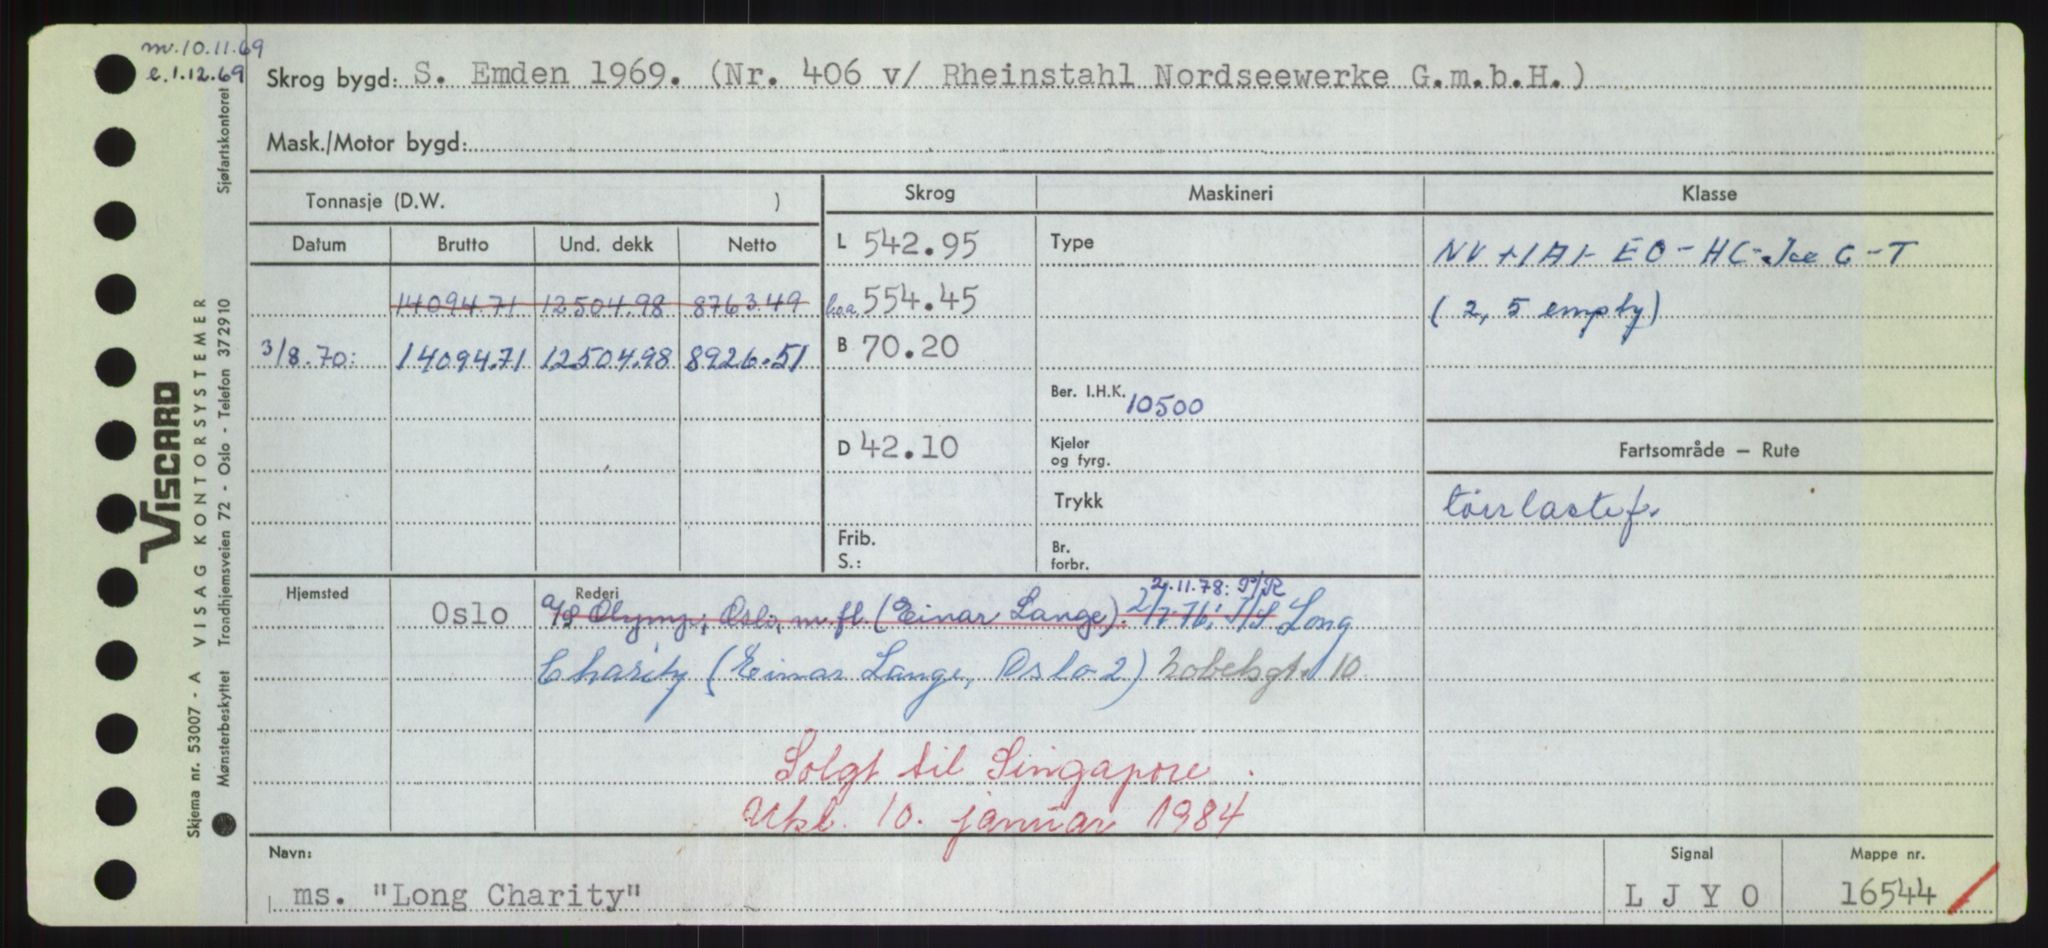 m.10.11.69
e.1.12.69
Skrog bygd: S. Emden 1969. (Nr. 406 v/ Rheinstahl Nordseewerke G.m.b.H.)
Mask./Motor bygd:
Tonnasje (D.W. )
Skrog Maskineri Klasse
Datum Brutto Und. dekk Netto
L 542.95 Type
NV +1A1- EO-HC-Ice C-T
14094.71 12504.98 8763.49
l.o.a. 554.45
(2, 5 empty)
3/8.70: 14094.71 12504.98 8926.51
B 70.20
Ber. I.H.K. 10500
D 42.10
Kjeler
og fyrg.
Fartsområde – Rute
Trykk
tørrlastef.
Frib.
S.:
Br.
forbr.
Hjemsted Oslo Rederi
2.11.78: P/R
A/S Olymp, Oslo, m.fl. (Einar Lange). I/S Long
Charity (Einar Lange, Oslo 2) Nobelsgt. 10
Solgt til Singapore.
Utkl. 10. januar 1984
Navn: Signal Mappe nr.
ms. "Long Charity" L J Y O 16544
VISCARD
VISAG KONTORSYSTEMER
Skjema nr. 53007 - A
Mønsterbeskyttet Trondhjemsveien 72 - Oslo - Telefon 372910 Sjøfartskontoret